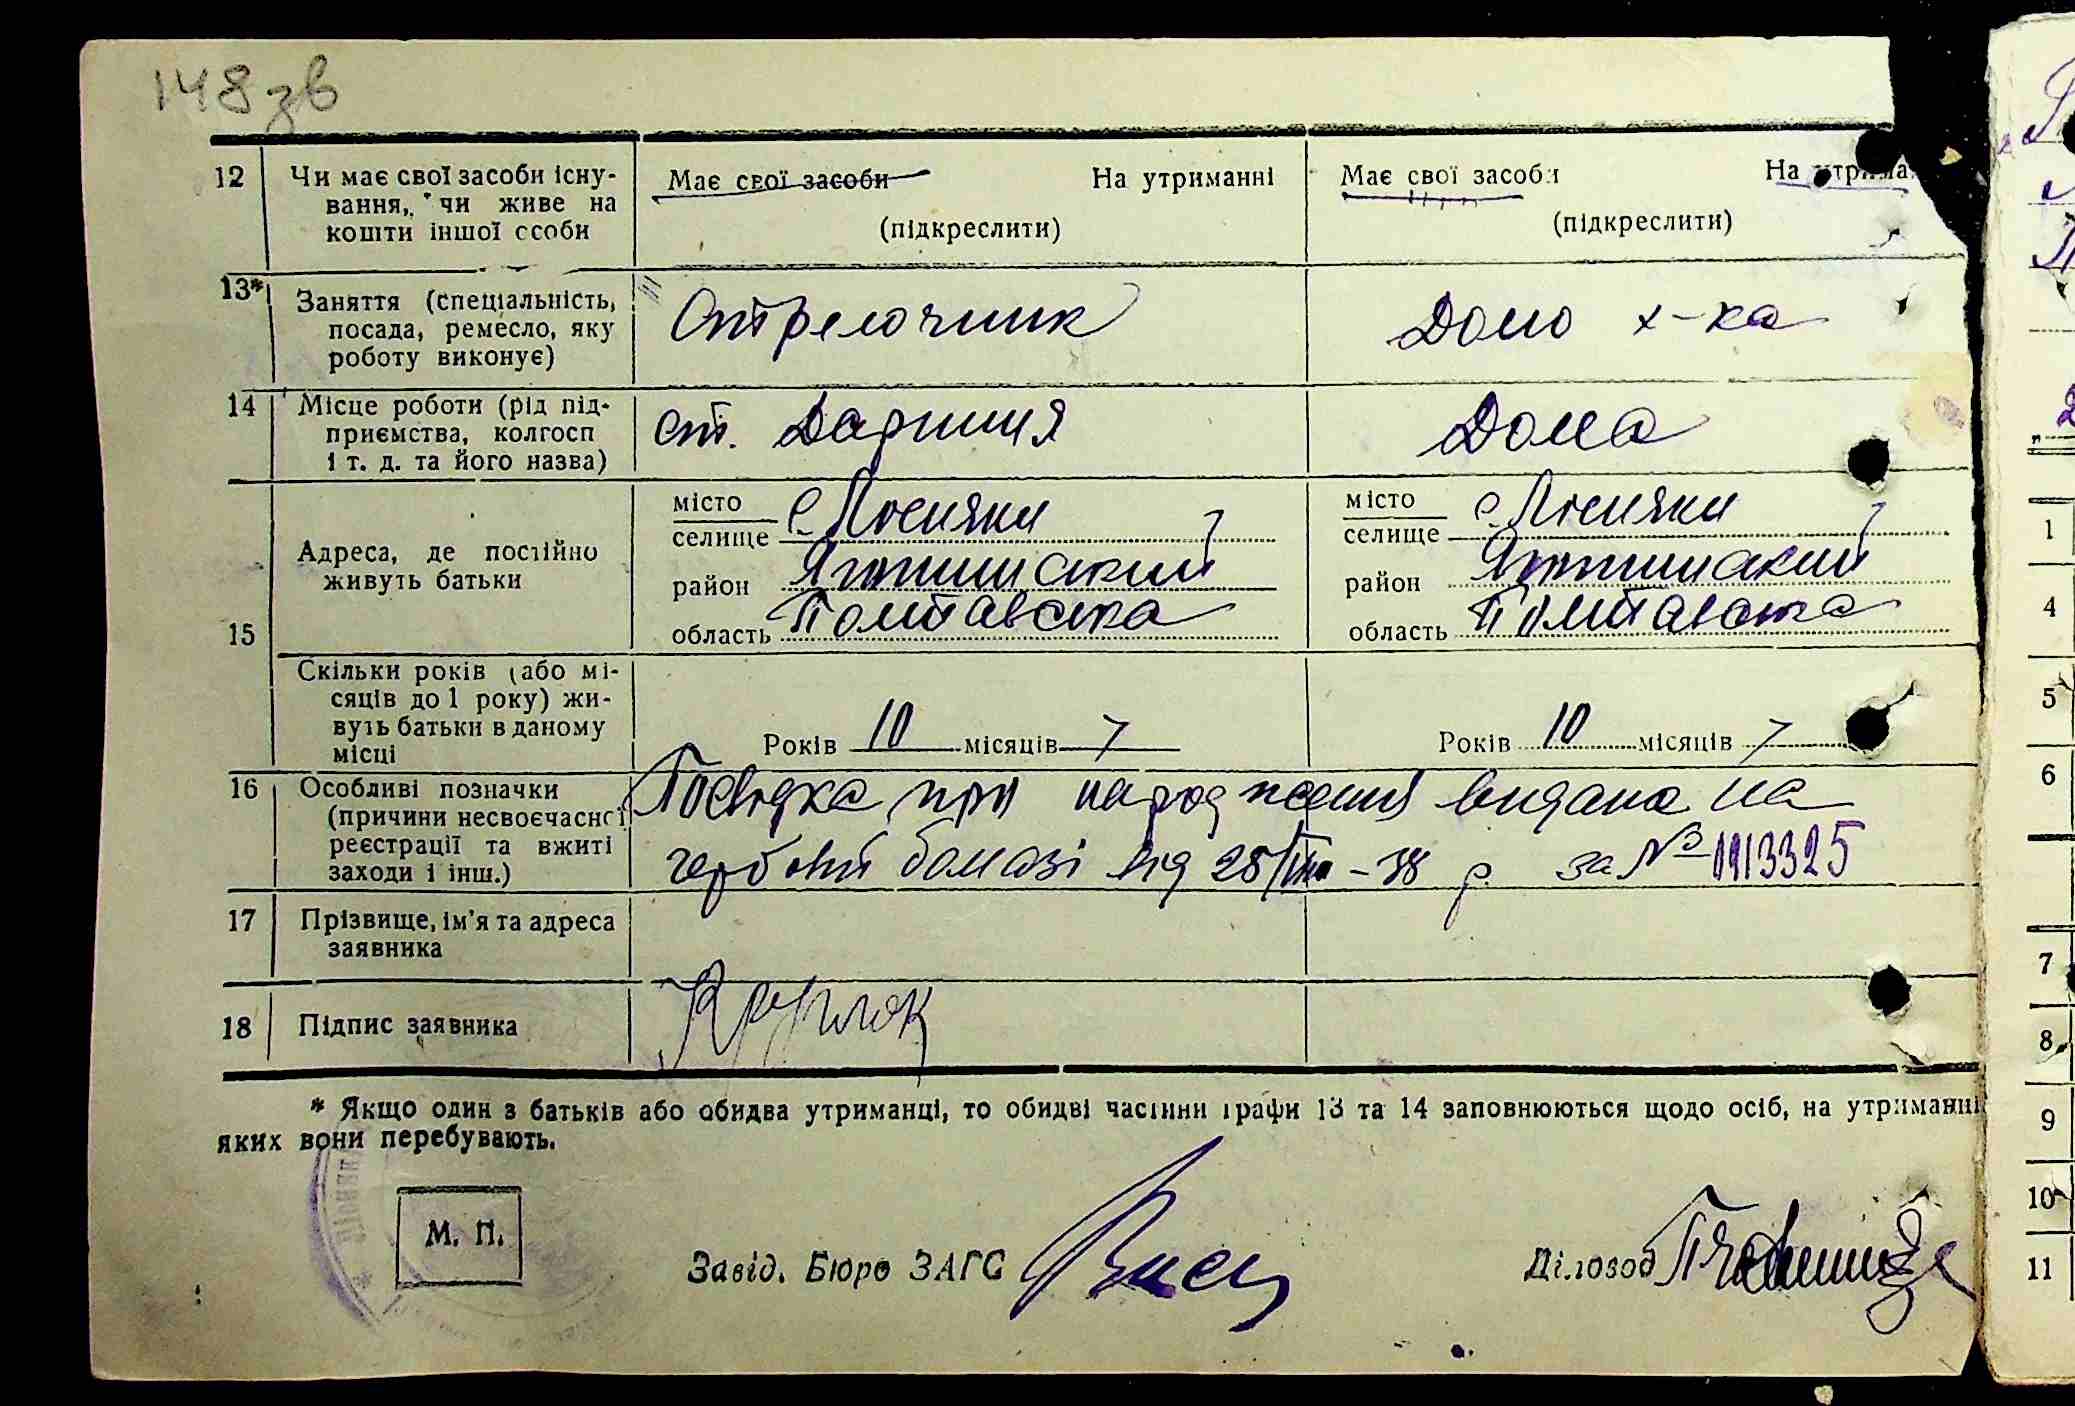 148зв
12 Чи має свої засоби існування, чи живе на кошти іншої особи
Має свої засоби На утриманні
(підкреслити)
Має свої засоби На утрима
(підкреслити)
13* Заняття (спеціальність, посада, ремесло, яку роботу виконує)
Стрелочник
Домо х-ка
14 Місце роботи (рід підприємства, колгосп і т. д. та його назва)
ст. Дарниця
Дома
15 Адреса, де постійно живуть батьки
місто
селище с. Лисняки
район Яготинский
область Полтавська
місто
селище с. Лисняки
район Яготинский
область Полтавська
Скільки років (або місяців до 1 року) живуть батьки в даному місці
Років 10 місяців 7
Років 10 місяців 7
16 Особливі позначки (причини несвоєчасної реєстрації та вжиті заходи і інш.)
Посвідка при народженні видана на
гербовій бомазі від 28/VIII-38 р. за № 1913325
17 Прізвище, ім'я та адреса заявника
18 Підпис заявника
* Якщо один з батьків або обидва утриманці, то обидві частини графи 13 та 14 заповнюються щодо осіб, на утриманні
яких вони перебувають.
М. П.
Завід. Бюро ЗАГС
Діловод
1
4
5
6
7
8
9
10
11